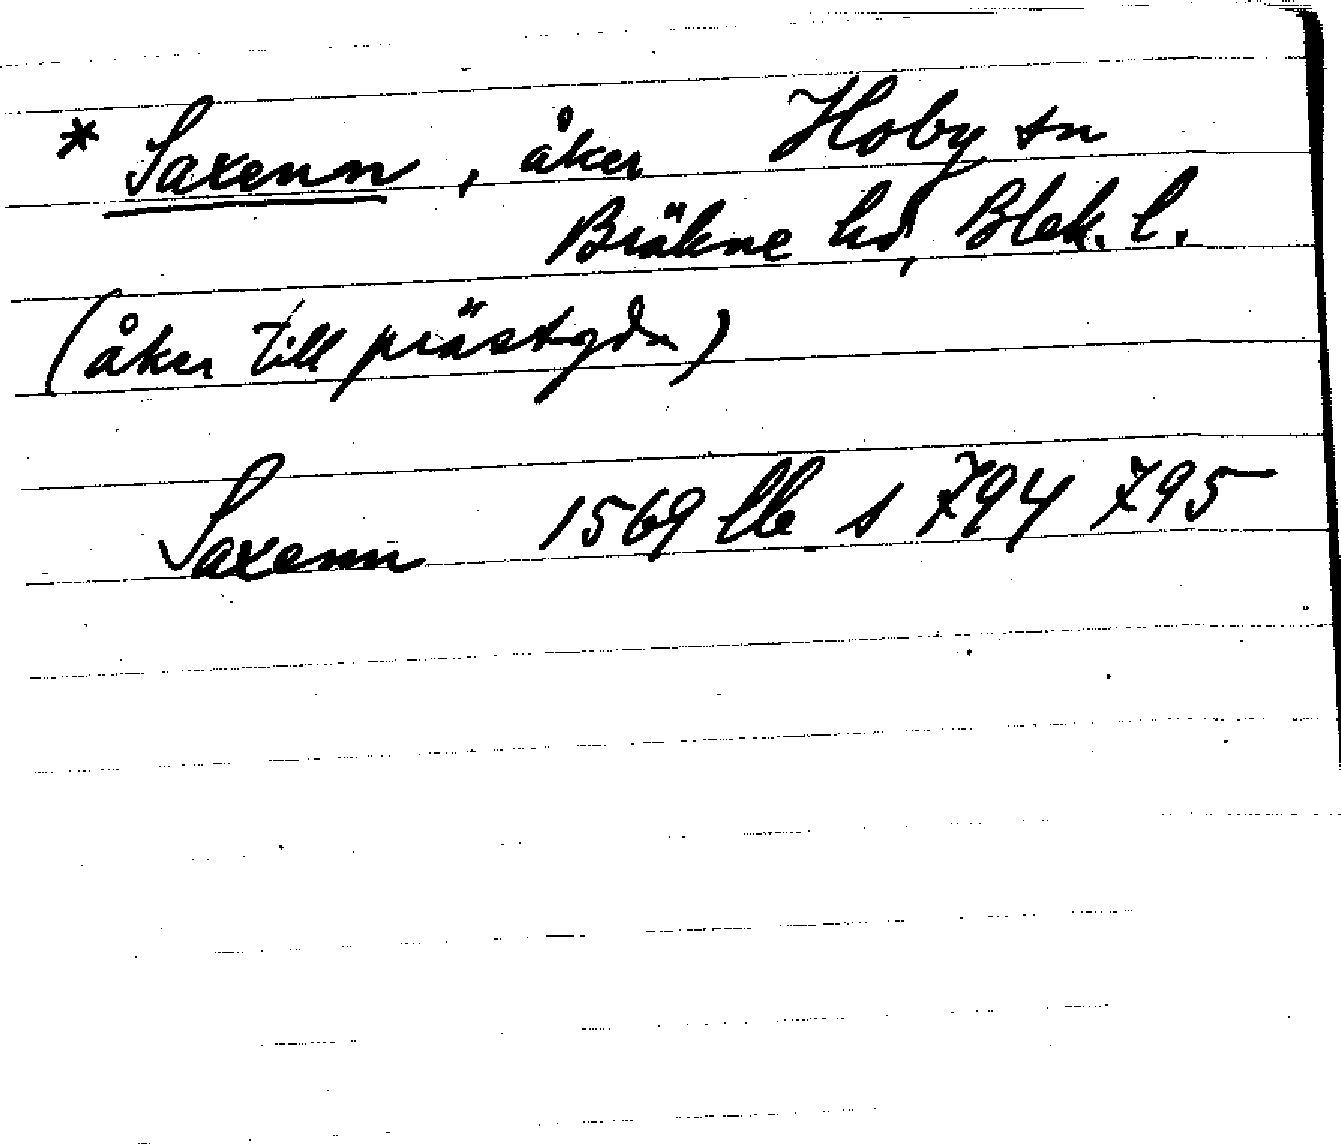 * Saxenn, åker Hoby sn
Bräkne hd, Blek. l.
(åker till prästgdn)
Saxenn 1569 llb s 794 795